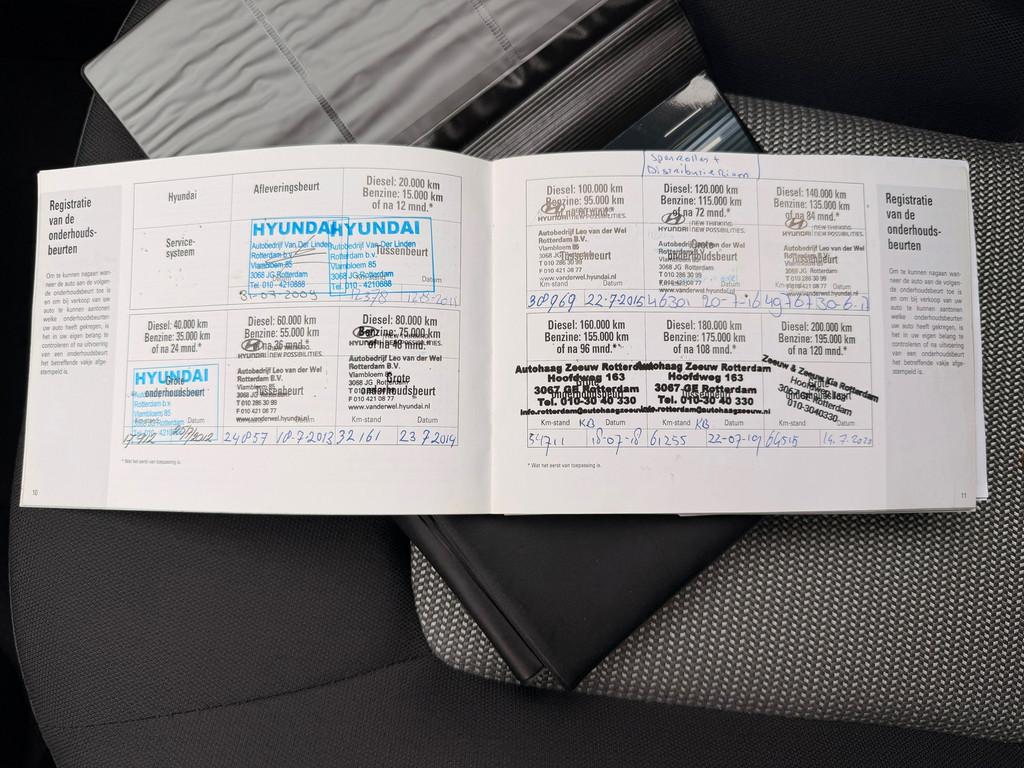 Registratie
van de
onderhouds-
beurten
Om te kunnen nagaan wan-
neer de auto aan de volgen-
de onderhoudsbeurt toe is
en om bij verkoop van uw
auto te kunnen aantonen
welke onderhoudsbeurten
uw auto heeft gekregen, is
het in uw eigen belang te
controleren of na uitvoering
van een onderhoudsbeurt
het betreffende vakje afge-
stempeld is.
Hyundai
Afleveringsbeurt
Diesel: 20.000 km
Benzine: 15.000 km
of na 12 mnd.*
Service-
systeem
HYUNDAI
Autobedrijf Van Der Linden
Rotterdam b.v.
Vlambloem 85
3068 JG Rotterdam
Tel. 010 - 4210888
31-07-2009
HYUNDAI
Autobedrijf Van Der Linden
Rotterdam b.v.
Vlambloem 85
3068 JG Rotterdam
Tel. 010 - 4210888
Tussenbeurt
Datum
Diesel: 40.000 km
Benzine: 35.000 km
of na 24 mnd.*
HYUNDAI
Grote
onderhoudsbeurt
Rotterdam b.v.
Vlambloem 85
3068 JG Rotterdam
Diesel: 60.000 km
Benzine: 55.000 km
of na 36 mnd.*
HYUNDAI
NEW THINKING.
NEW POSSIBILITIES.
Autobedrijf Leo van der Wel
Rotterdam B.V.
Vlambloem 85
3068 JG Rotterdam
Tussenbeurt
T 010 286 30 99
F 010 421 08 77
www.vanderwel.hyundai.nl
24857 18-7-2013
Diesel: 80.000 km
Benzine: 75.000 km
of na 48 mnd.*
Autobedrijf Leo van der Wel
Rotterdam B.V.
Vlambloem 85
3068 JG Rotterdam
Grote
onderhoudsbeurt
T 010 286 30 99
F 010 421 08 77
www.vanderwel.hyundai.nl
32161 23 7 2014
* Wat het eerst van toepassing is.
10
Distributie Riem
Diesel: 100.000 km
Benzine: 95.000 km
NEW POSSIBILITIES.
Autobedrijf Leo van der Wel
Rotterdam B.V.
Vlambloem 85
3068 JG Rotterdam
T 010 286 30 99
F 010 421 08 77
www.vanderwel.hyundai.nl
38969 22-7-2015
Diesel: 120.000 km
Benzine: 115.000 km
of na 72 mnd.*
HYUNDAI
NEW THINKING.
NEW POSSIBILITIES.
Autobedrijf Leo van der Wel
Rotterdam B.V.
Grote
onderhoudsbeurt
Vlambloem 85
3068 JG Rotterdam
T 010 286 30 99
www.vanderwel.hyundai.nl
20-7-16
Diesel: 140.000 km
Benzine: 135.000 km
of na 84 mnd.*
HYUNDAI
NEW THINKING.
NEW POSSIBILITIES.
Autobedrijf Leo van der Wel
Rotterdam B.V.
Tussenbeurt
Vlambloem 85
3068 JG Rotterdam
T 010 286 30 99
www.vanderwel.hyundai.nl
Diesel: 160.000 km
Benzine: 155.000 km
of na 96 mnd.*
Autohaag Zeeuw Rotterdam
Hoofdweg 163
3067 GE Rotterdam
Tel. 010-30 40 330
Km-stand KB Datum
18-07-18
Diesel: 180.000 km
Benzine: 175.000 km
of na 108 mnd.*
Autohaag Zeeuw Rotterdam
Hoofdweg 163
3067 GE Rotterdam
Tel. 010-30 40 330
info.rotterdam@autohaagzeeuw.nl
Km-stand KB Datum
61255 22-07-19
Diesel: 200.000 km
Benzine: 195.000 km
of na 120 mnd.*
Zeeuw & Zeeuw Kia Rotterdam
010-3040330
Km-stand Datum
64515 14.7.2020
* Wat het eerst van toepassing is.
Registratie
van de
onderhouds-
beurten
Om te kunnen nagaan wan-
neer de auto aan de volgen-
de onderhoudsbeurt toe is
en om bij verkoop van uw
auto te kunnen aantonen
welke onderhoudsbeurten
uw auto heeft gekregen, is
het in uw eigen belang te
controleren of na uitvoering
van een onderhoudsbeurt
het betreffende vakje afge-
stempeld is.
11